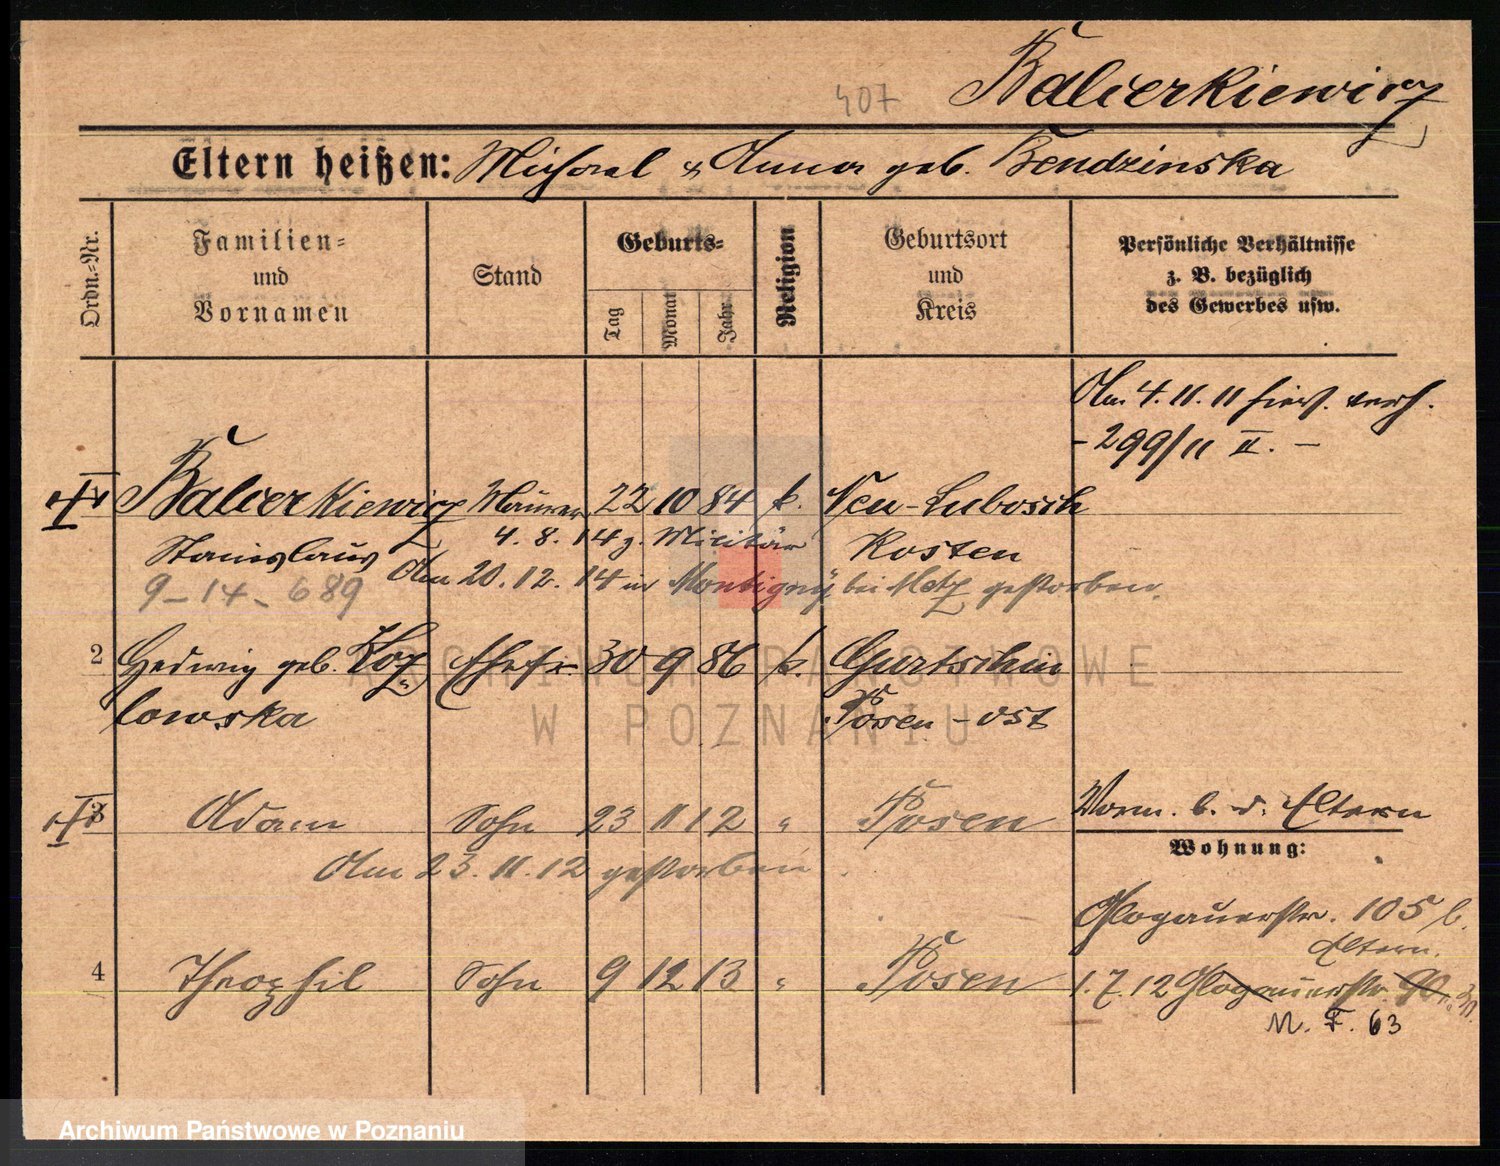 407
Balcerkiewicz
Eltern heißen: Michael & Anna geb. Bendzinska
Ordn.=Nr.
Familien=
und
Vornamen
Stand
Geburts=
Tag
Monat
Jahr
Religion
Geburtsort
und
Kreis
Persönliche Verhältnisse
z. B. bezüglich
des Gewerbes usw.
Am 4.11.11 hier verh.
- 299/11 II. -
Balcerkiewicz Maurer 22 10 84 k. Neu-Lubosch
4. 8. 14 z. Militär
Stanislaus Kosten
Am 20.12.14 in Montigny bei Metz gestorben.
9-14-689
2 Hedwig geb. Koz= Ehefr. 30 9 86 k. Gurtschin
lowska Posen-Ost
3 Adam Sohn 23 11 12 " Posen
Am 23.11.12 gestorben.
Vorm. b. d. Eltern
Wohnung:
Glogauerstr. 105 b.
Eltern.
4 Theophil Sohn 9 12 13 " Posen
1.7.12 Glogauerstr. 90
N. F. 63
ARCHIWUM PAŃSTWOWE
W POZNANIU
Archiwum Państwowe w Poznaniu